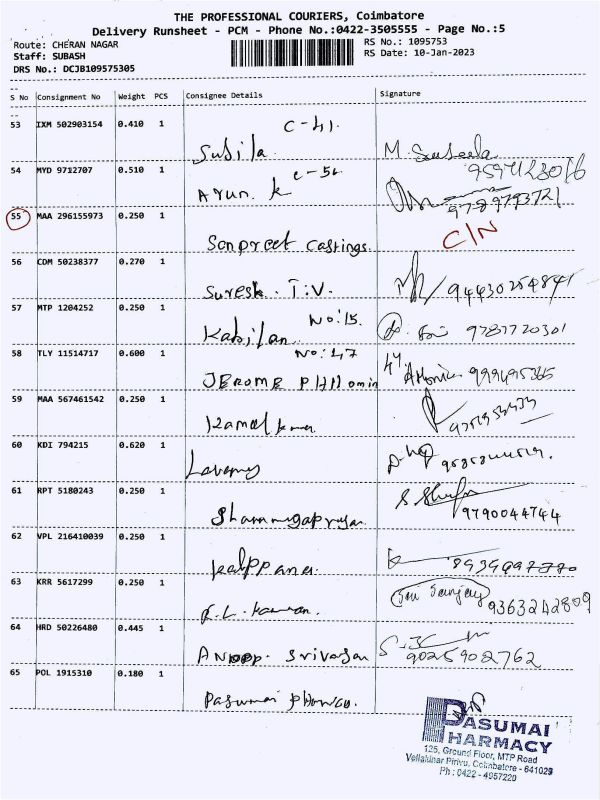 THE PROFESSIONAL COURIERS, Coimbatore
Delivery Runsheet - PCM - Phone No.:0422-3505555 - Page No.:5
Route: CHERAN NAGAR RS No.: 1095753
Staff: SUBASH RS Date: 10-Jan-2023
DRS No.: DCJB109575305
S No Consignment No Weight PCS Consignee Details Signature
53 IXM 502903154 0.410 1 C-41.
Susila M. Suseela
54 MYD 9712707 0.510 1 C-52
Arun. K 9789793721
55 MAA 296155973 0.250 1 C/N
Sonpreet Castings.
56 COM 50238377 0.270 1
Suresh. T.V.
57 MTP 1204252 0.250 1 No:15.
Kabilan 9787720301
58 TLY 11514717 0.600 1 No:47
JEROME PHILOMIN 47
59 MAA 567461542 0.250 1
Kamal
60 KDI 794215 0.620 1
61 RPT 5180243 0.250 1
Shanmugapriya. 9790044744
62 VPL 216410039 0.250 1
Kalppana.
63 KRR 5617299 0.250 1
Sanjay 9363242809
64 HRD 50226480 0.445 1
Anoop. Srivasan 9025902762
65 POL 1915310 0.180 1
Pasumai
PASUMAI
PHARMACY
125, Ground Floor, MTP Road
Vellakinar Pirivu, Coimbatore - 641029
Ph : 0422 - 4957220